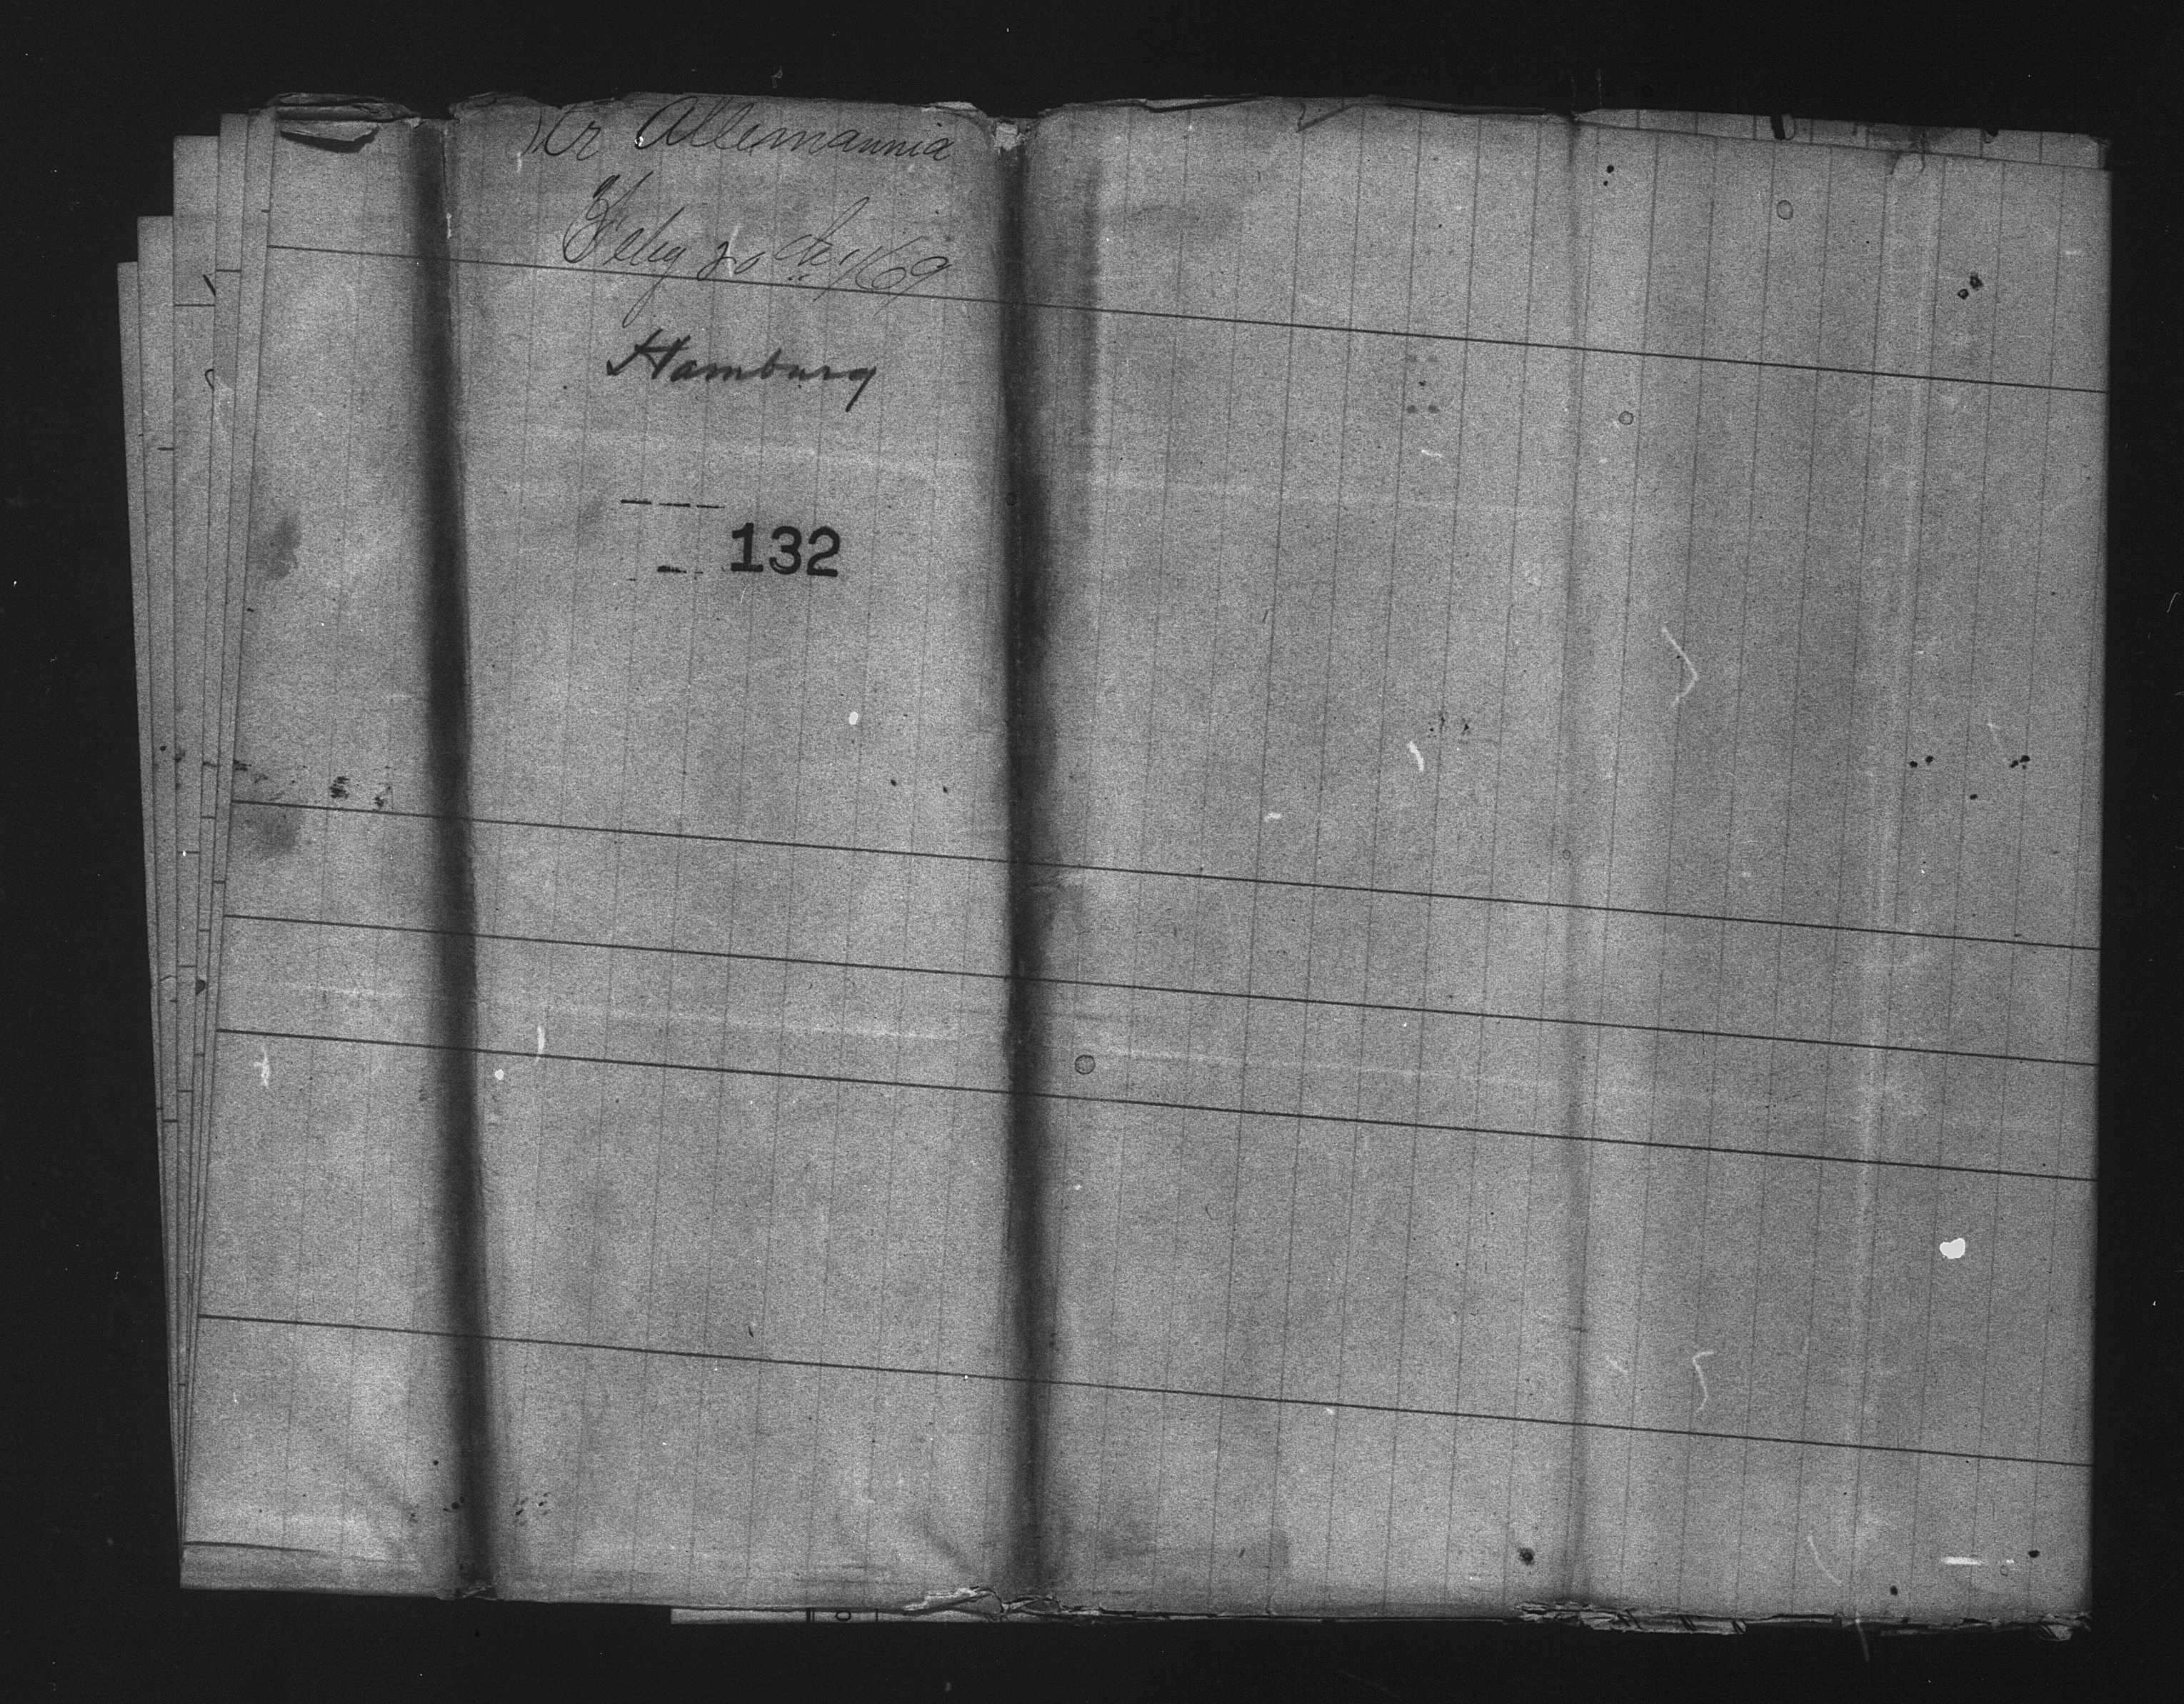 Str Allemannia
Feby 20th 1869
Hamburg
132